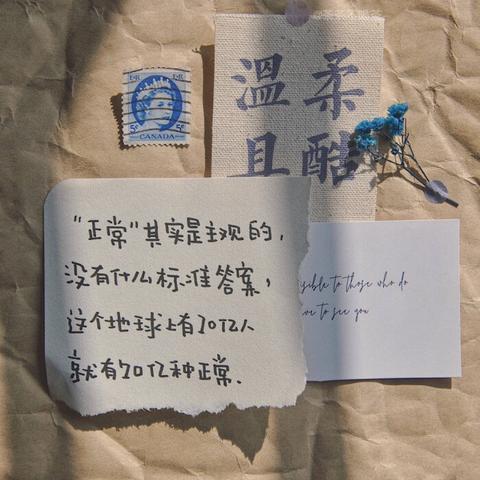 E R E R
5¢ CANADA 5¢
溫柔
且酷
“正常”其实是主观的,
没有什么标准答案,
这个地球上有70亿人
就有70亿种正常.
sible to those who do
to see you